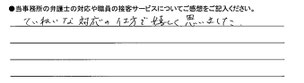 ●当事務所の弁護士の対応や職員の接客サービスについてご感想をご記入ください。
ていねいな対応の仕方を嬉しく思いました。